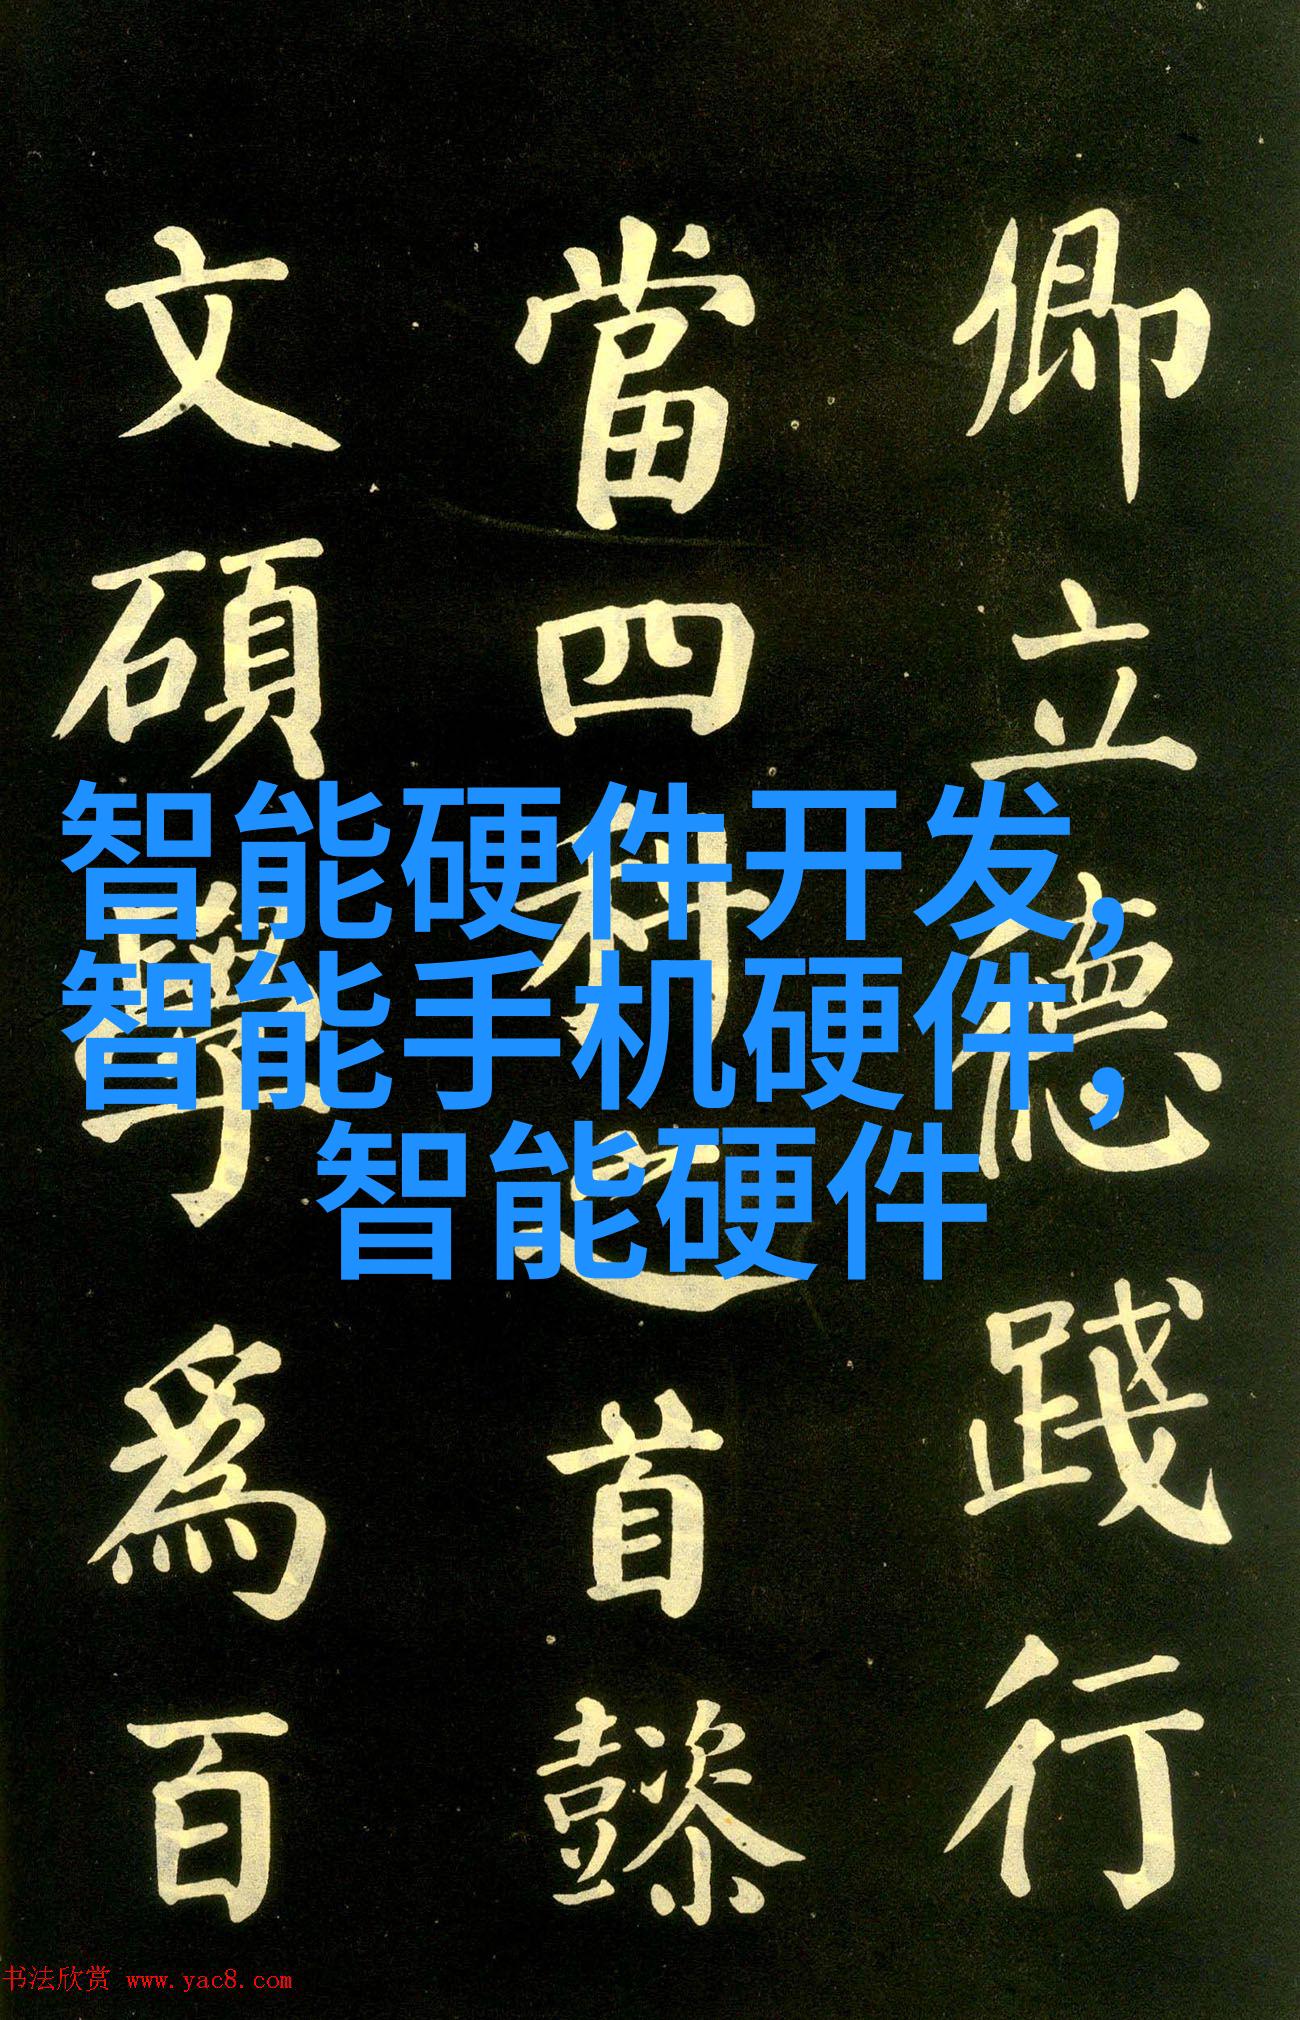 卿立德踐行
當四科之首懿
文碩學爲百
智能硬件开发,
智能手机硬件,
智能硬件
书法欣赏 www.yac8.com